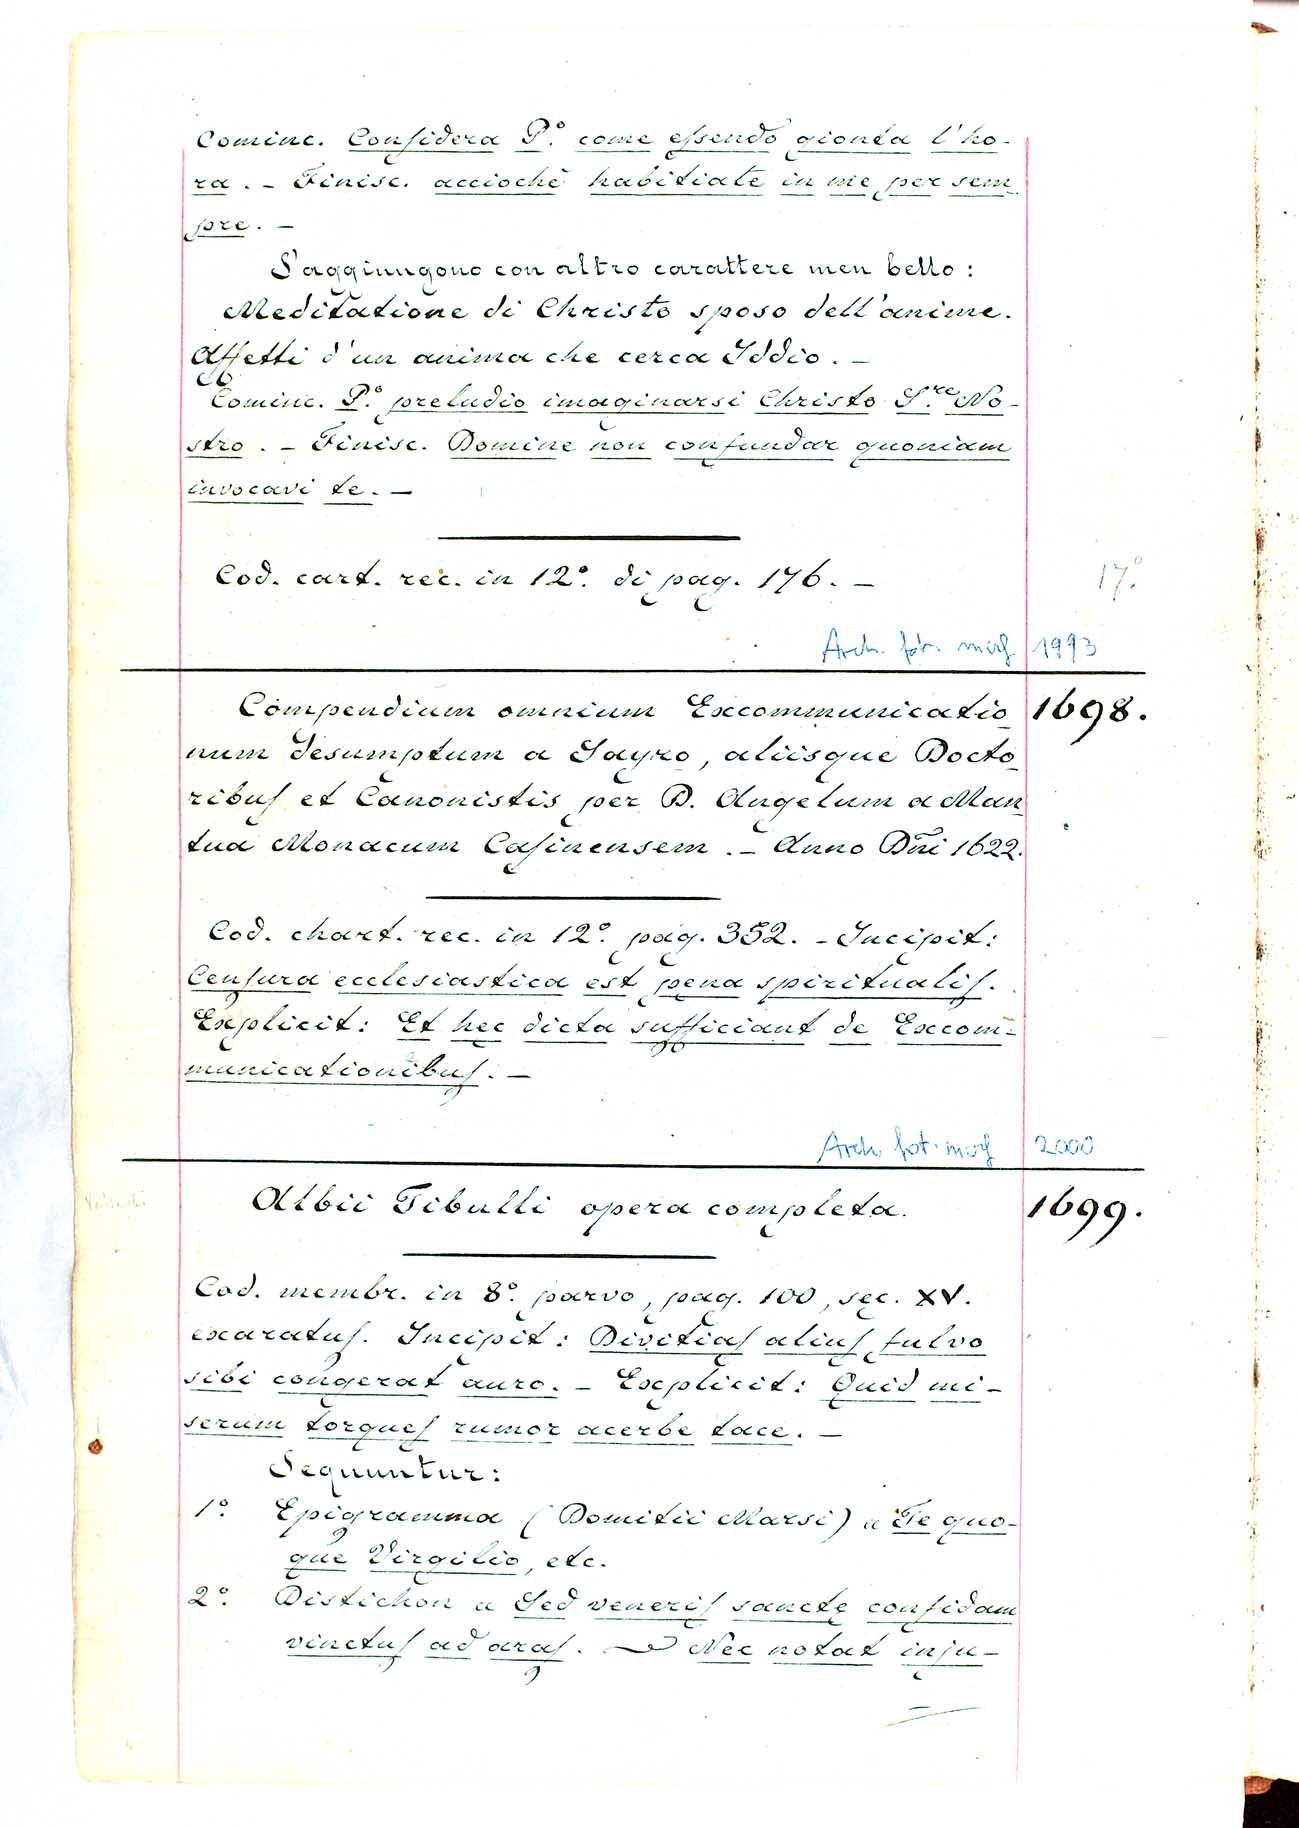 Cominc. Considera P.º come essendo gionta l'ho-
ra. - Finisc. acciochè habitiate in me per sem-
pre. -
S'aggiungono con altro carattere men bello:
Meditatione di Christo sposo dell'anime.
Affetti d'un anima che cerca Iddio. -
Cominc. P.º preludio imaginarsi Christo S.re No-
stro. - Finisc. Domine non confundar quoniam
invocavi te. -
Cod. cart. rec. in 12º. di pag. 176. -
17º.
Arch. fot. 1993
Compendium omnium Excommunicatio- 1698.
num desumptum a Sayro, aliisque Docto-
ribus et Canonistis per D. Angelum a Man-
tua Monacum Casinensem. - Anno Dñi 1622.
Cod. chart. rec. in 12º. pag. 352. - Incipit:
Censura ecclesiastica est pena spiritualis.
Explicit: Et hec dicta sufficiant de Excom-
municationibus. -
Arch. fot. 2000
Albii Tibulli opera completa. 1699.
Cod. membr. in 8º. parvo, pag. 100, sec. XV.
exaratus. Incipit: Divitias alius fulvo
sibi congerat auro. - Explicit: Quid mi-
serum torques rumor acerbe tace. -
Sequuntur:
1º. Epigramma (Domitii Marsi) " Te quo-
que Virgilio, etc.
2º. Distichon " Sed veneris sancte considam
vinctus ad aras. - Nec notat inju-